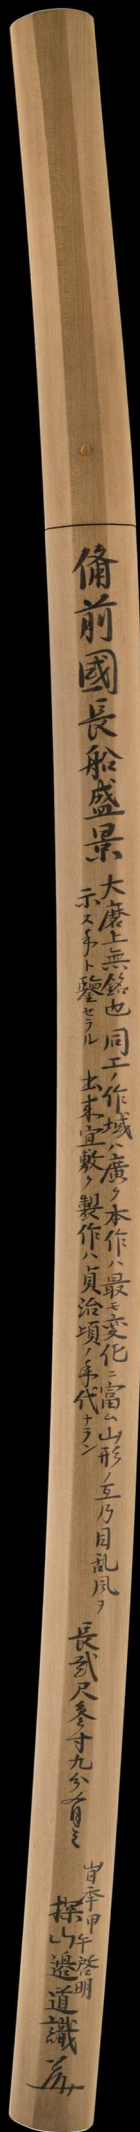 備前國長船盛景
大磨上無銘也 同工ノ作域ハ廣ク本作ハ最モ変化ニ富ム山形ノ互乃目乱風ヲ
示ス手ト鑒セラル 出来宜敷ク製作ハ貞治頃ノ年代ナラン
長貮尺参寸九分有之
旹季甲午啓明
探山邉道識